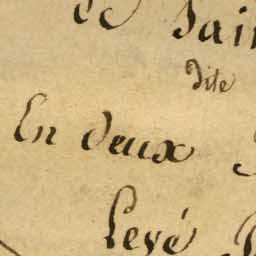 de Sain
dite
En deux
Levé